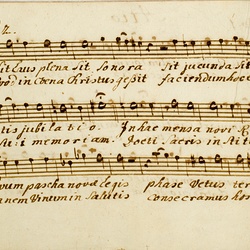 2.
Sit Laus plena sit sonora Sit jucunda sit
Quod in Coena Christus gessit faciendum hoc e
tis jubilatio. In hac mensa novi
sui memoriam. Docti sacris institu
ovum pascha novae legis phase Vetus ter
panem Vinum in Salutis consecramus hos